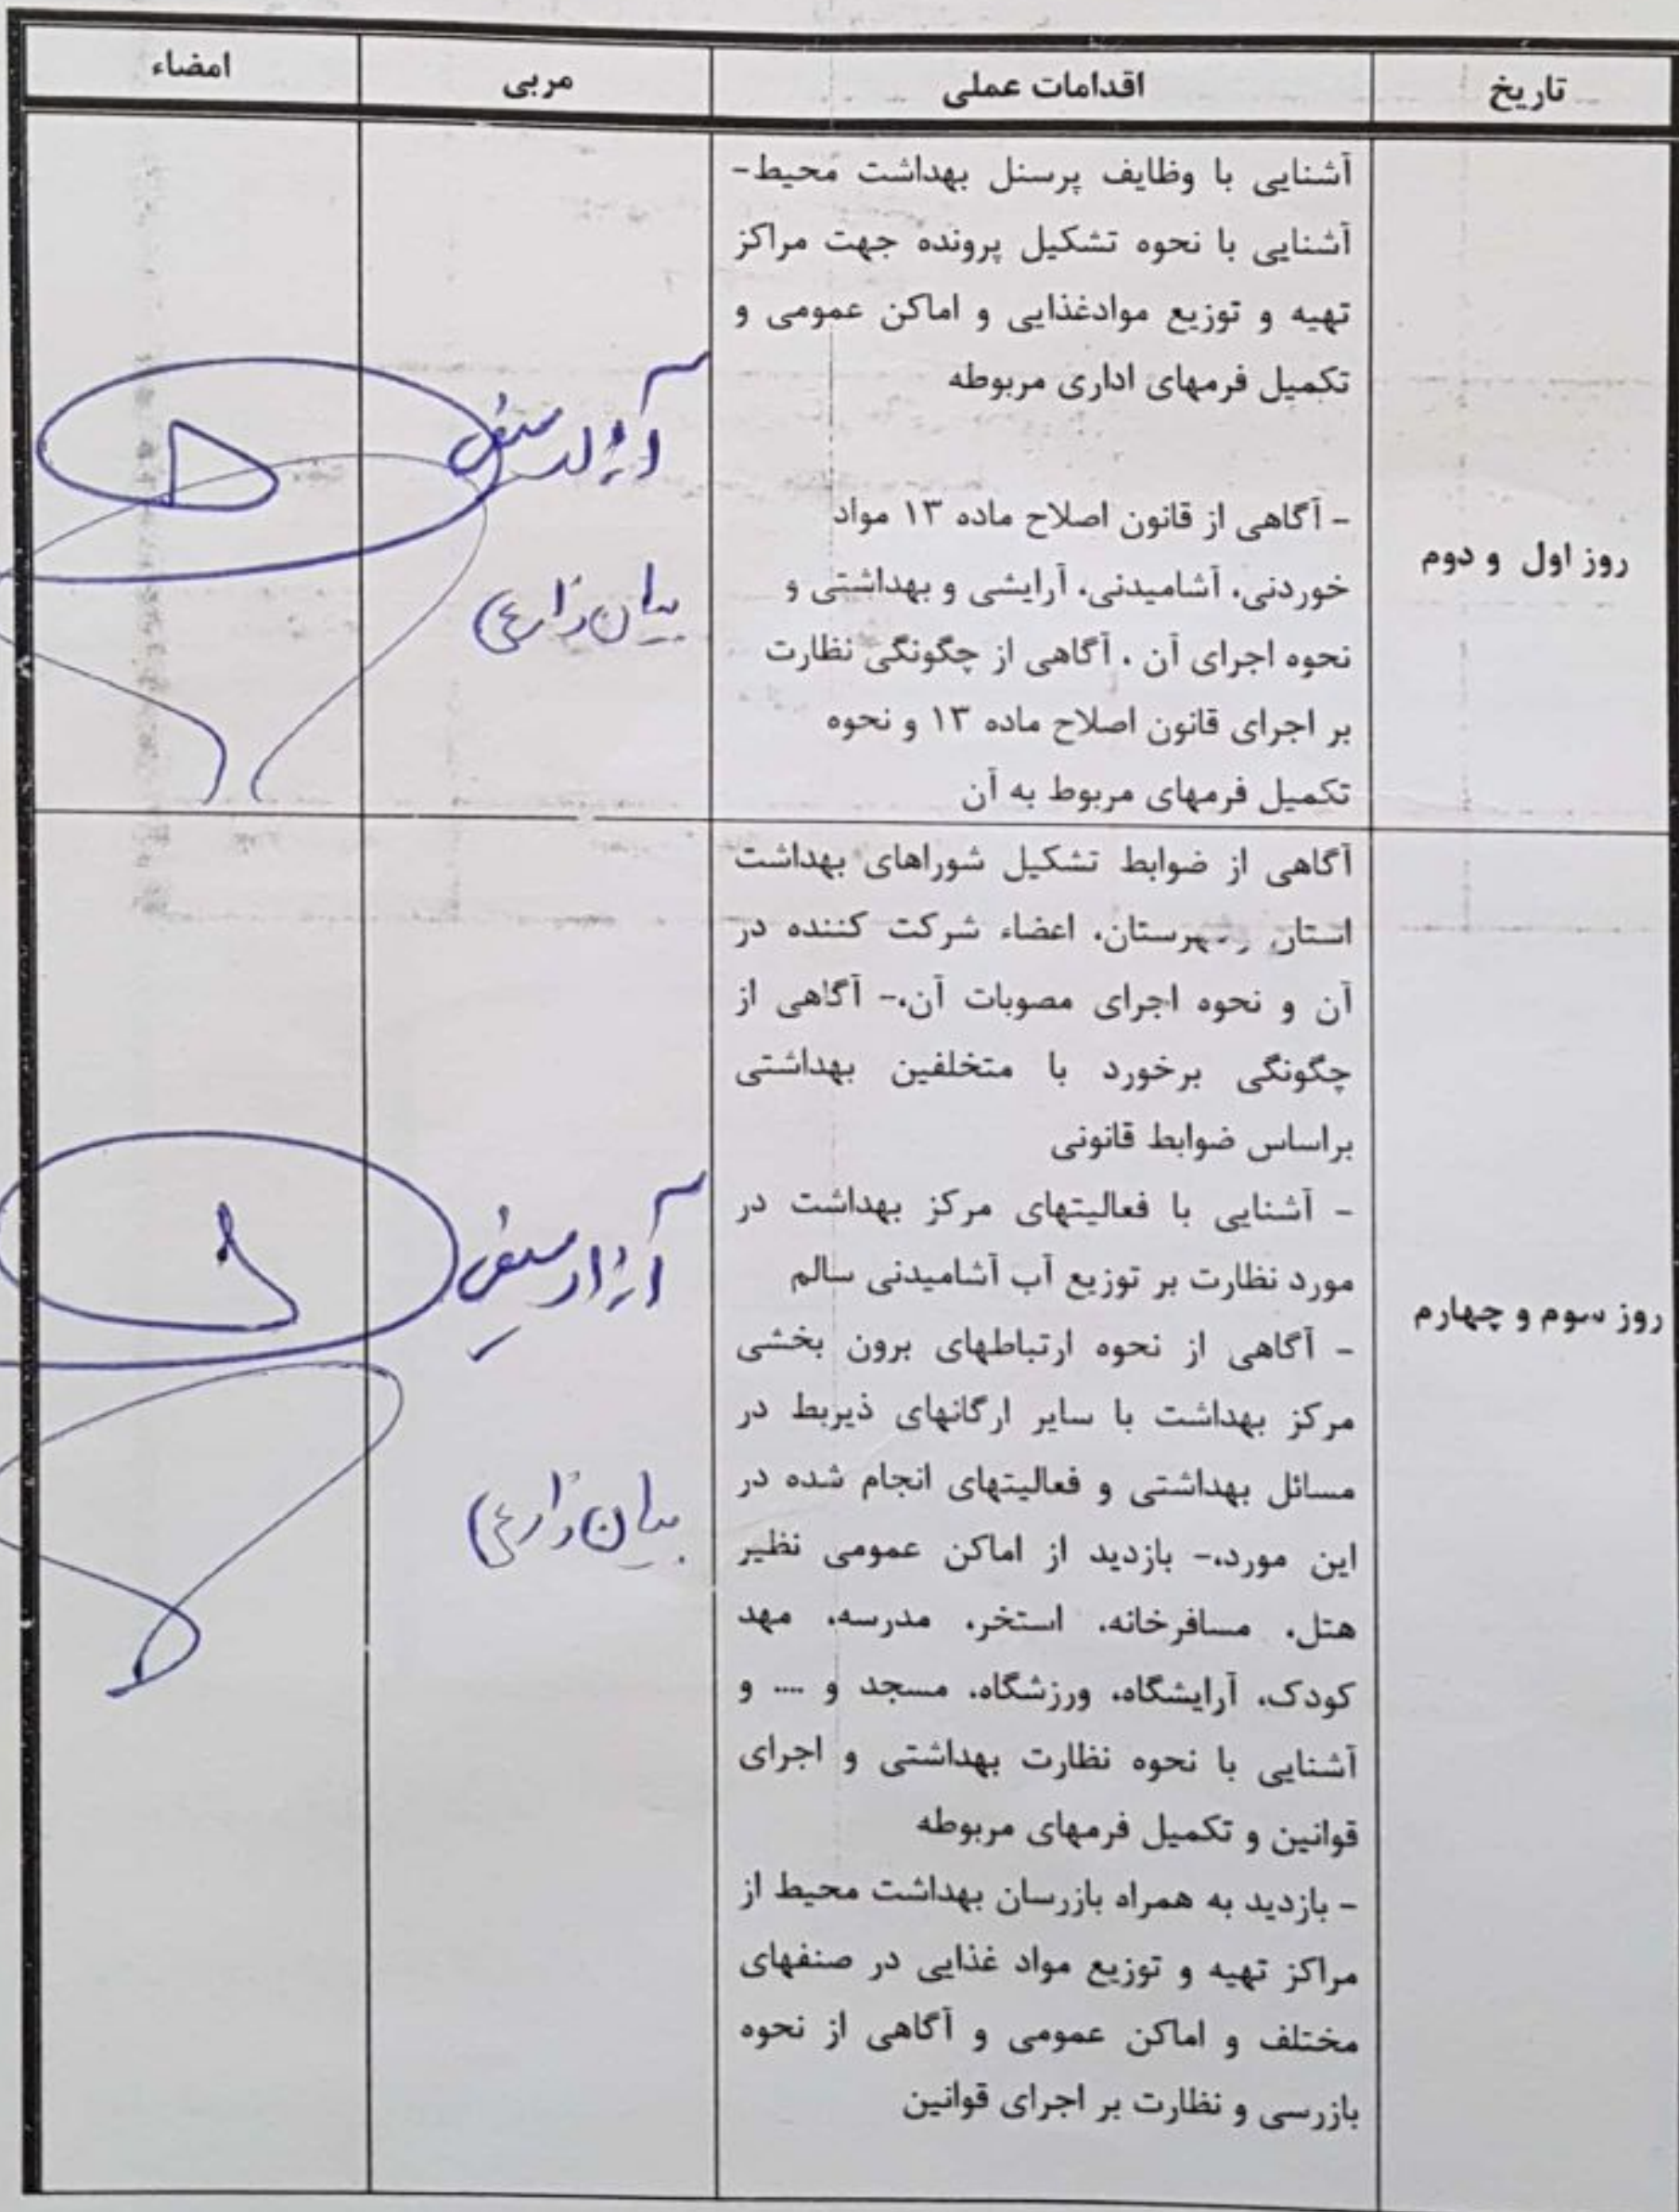 تاریخ اقدامات عملی مربی امضاء
آشنایی با وظایف پرسنل بهداشت محیط-
آشنایی با نحوه تشکیل پرونده جهت مراکز
تهیه و توزیع موادغذایی و اماکن عمومی و
تکمیل فرمهای اداری مربوطه
- آگاهی از قانون اصلاح ماده ۱۳ مواد
خوردنی، آشامیدنی، آرایشی و بهداشتی و
نحوه اجرای آن . آگاهی از چگونگی نظارت
بر اجرای قانون اصلاح ماده ۱۳ و نحوه
تکمیل فرمهای مربوط به آن
روز اول و دوم
زارعی
آگاهی از ضوابط تشکیل شوراهای بهداشت
استان، اعضاء شرکت کننده در
آن و نحوه اجرای مصوبات آن،- آگاهی از
چگونگی برخورد با متخلفین بهداشتی
براساس ضوابط قانونی
- آشنایی با فعالیتهای مرکز بهداشت در
مورد نظارت بر توزیع آب آشامیدنی سالم
- آگاهی از نحوه ارتباطهای برون بخشی
مرکز بهداشت با سایر ارگانهای ذیربط در
مسائل بهداشتی و فعالیتهای انجام شده در
این مورد،- بازدید از اماکن عمومی نظیر
هتل، مسافرخانه، استخر، مدرسه، مهد
کودک، آرایشگاه، ورزشگاه، مسجد و .... و
آشنایی با نحوه نظارت بهداشتی و اجرای
قوانین و تکمیل فرمهای مربوطه
- بازدید به همراه بازرسان بهداشت محیط از
مراکز تهیه و توزیع مواد غذایی در صنفهای
مختلف و اماکن عمومی و آگاهی از نحوه
بازرسی و نظارت بر اجرای قوانین
روز سوم و چهارم
زارعی